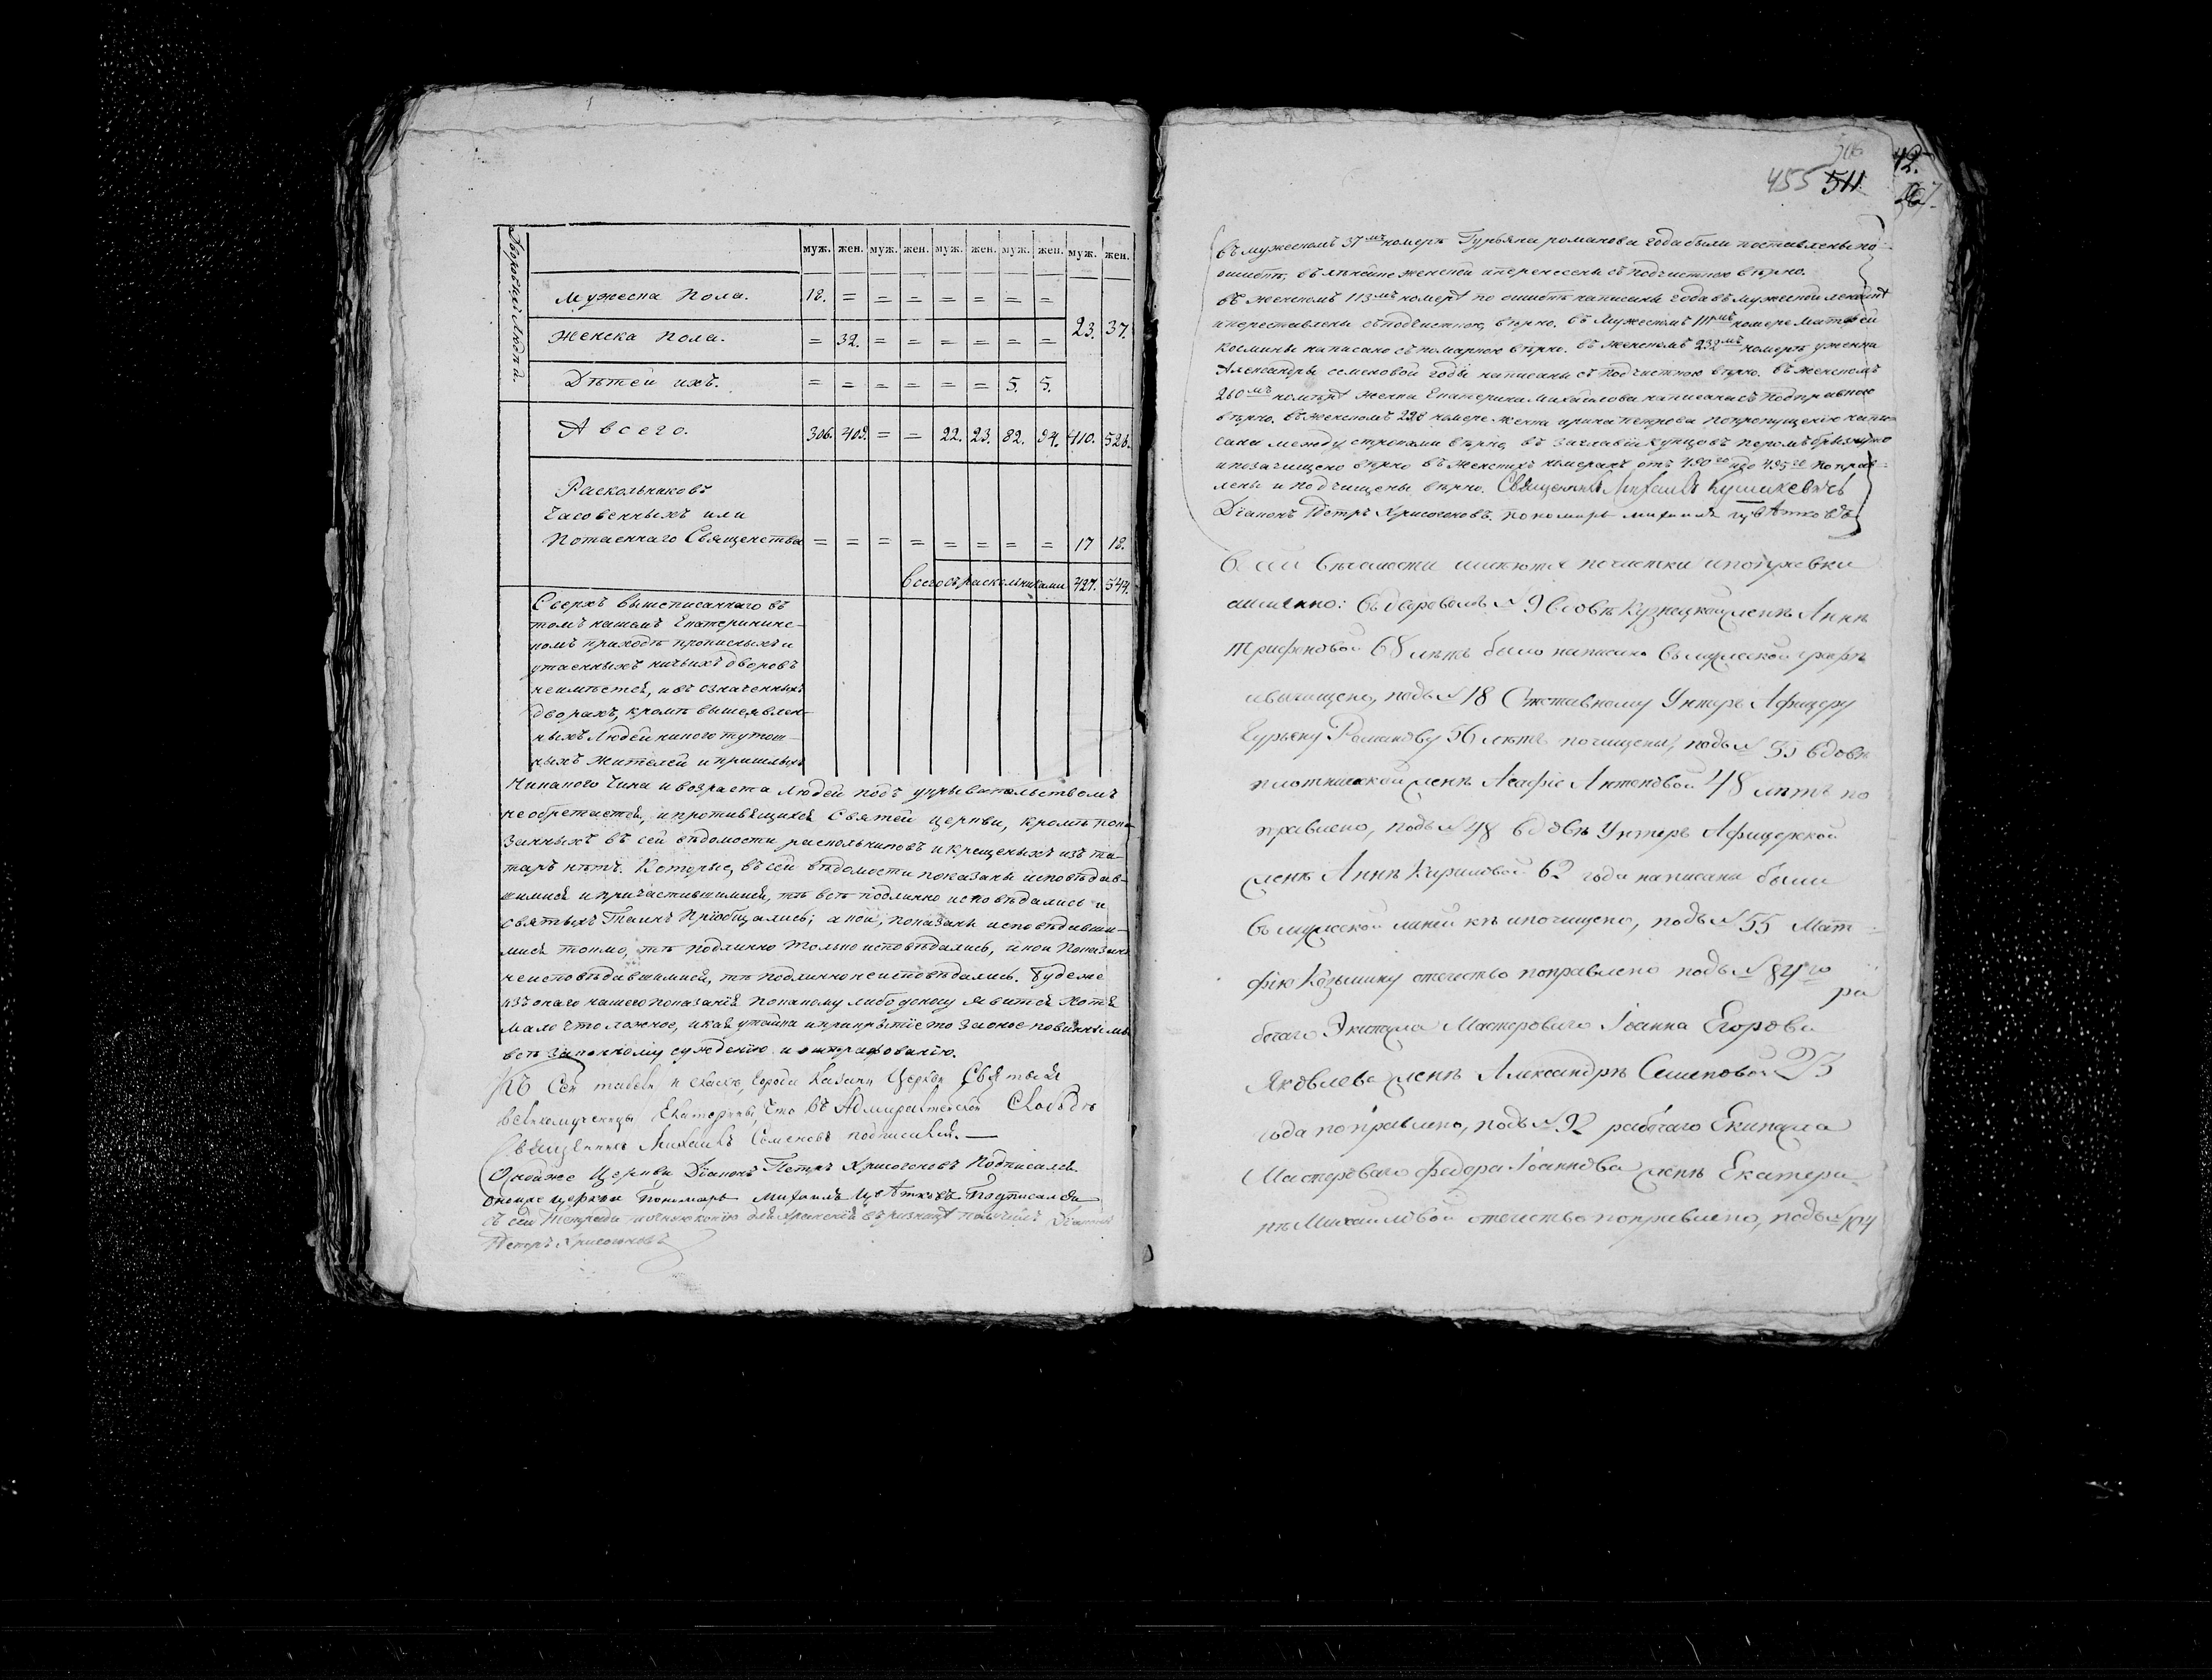 муж. жен. муж. жен. муж. жен. муж. жен. муж. жен.
Дворовыхъ Людей.
Мужеска Пола. 18. = = = = = = =
23. 37.
Женска Пола. = 32. = = = = = =
Дѣтей ихъ. = = = = = = 5. 5.
А всего. 306. 409. = = 22. 23. 82. 94. 410. 526.
Раскольниковъ
Часовенныхъ или
Потаеннаго Священства = = = = = = = = 17 18.
Всего съ раскольниками 427. 544.
Сверхъ вышеписаннаго въ
томъ нашемъ Екатеринин-
номъ приходѣ прописныхъ и
утаенныхъ ничьихъ дворовъ
неимѣется, и въ означенныхъ
дворахъ, кромѣ вышеявлен-
ныхъ Людей никого тутош-
ныхъ жителей и пришлыхъ
Никакого Чина и возраста Людей подъ укрывательствомъ
необретается, и противящихся Святей церкви, кромѣ пока-
занныхъ въ сей вѣдомости раскольниковъ и крещеныхъ изъ та-
таръ нѣтъ. Которые, въ сей вѣдомости показаны исповѣдав-
шимися и причастившимися, тѣ всѣ подлинно исповѣдались и
Святыхъ Таинъ Пріобщались; а кои, показаны исповѣдавши-
мися токмо, тѣ подлинно только исповѣдались, и кои Показаны
неисповѣдавшимися, тѣ подлинно неисповѣдались. Буде же
изъ онаго нашего показанія покакому либо доносу явится хотя
мало что ложное, и кая утайка и прикрытіе то за оное повинны мы
всѣ законному сужденію и штрафованію.
Къ Сей города Казани Церкви Святыя
великомученицы Екатерины, что въ Адмиралтейской Слободѣ
Священникъ Михаилъ Семеновъ подписался.
Тояже Церкви Діаконъ Петръ Хрисогоновъ Подписался.
Оноиже церкви Пономарь Михаилъ Цвѣтковъ Подписался
съ сей точную копію для храненія въ ризницѣ получилъ Діаконъ
Петръ Хрисогоновъ
306
455 511
42.
въ мужескомъ 37мъ номерѣ Гурьяна романова года были поставлены по
ошибкѣ, въ линію женской и перенесены съ подчисткою вѣрно.
въ женскомъ 113мъ номерѣ по ошибкѣ написаны года въ мужеской
и переставлены съ подчисткою, вѣрно. въ Мужескомъ 111мъ номере Матфей
Космины написано съ помаркою вѣрно. въ женскомъ 232мъ номерѣ у жены
Александры семеновой годы написаны съ подчисткою вѣрно. въ женскомъ
260мъ номерѣ жена Екатерина Михайлова написана съ Поправкою
вѣрно. въ женскомъ 228 номере жена ирина петрова попропущенію напи-
сана между строками вѣрно, въ заглавіи купцовъ перомъ брызнуто
и позачищено вѣрно въ женскихъ номерахъ отъ 490го и до 495го поправ-
лены и подчищены вѣрно. Священникъ Михаилъ
Діаконъ Петръ Хрисогоновъ. пономарь михаилъ цвѣтковъ
В сей вѣдомости имѣются почистки и поправки
а именно: въ дворовомъ № 9 вдовѣ Кузнецкой женѣ Аннѣ
Трифоновой 68 лѣтъ было написано въ мужеской графѣ
и вычищено, подъ № 18 Отставному Унтеръ Афицеру
Гурьяну Романову 56 лѣтъ почищены, подъ № 35 вдовѣ
плотничьей женѣ Агафіе Антоновой 48 лѣтъ по
правлено, подъ № 48 вдовѣ Унтеръ Афицерской
женѣ Аннѣ Кириловой 62 года написаны были
въ мужской линейкѣ и почищено, подъ № 55 Мат-
фѣю Козьмину отечество поправлено подъ № 84го ра
бочаго Экипажа Мастероваго Іоанна Егорова
Яковлева женѣ Александрѣ Семеновой 23
года поправлено, подъ № 92 рабочаго Екипажа
Мастероваго Федора Іоаннова женѣ Екатери-
нѣ Михайловой отечество поправлено, подъ № 104